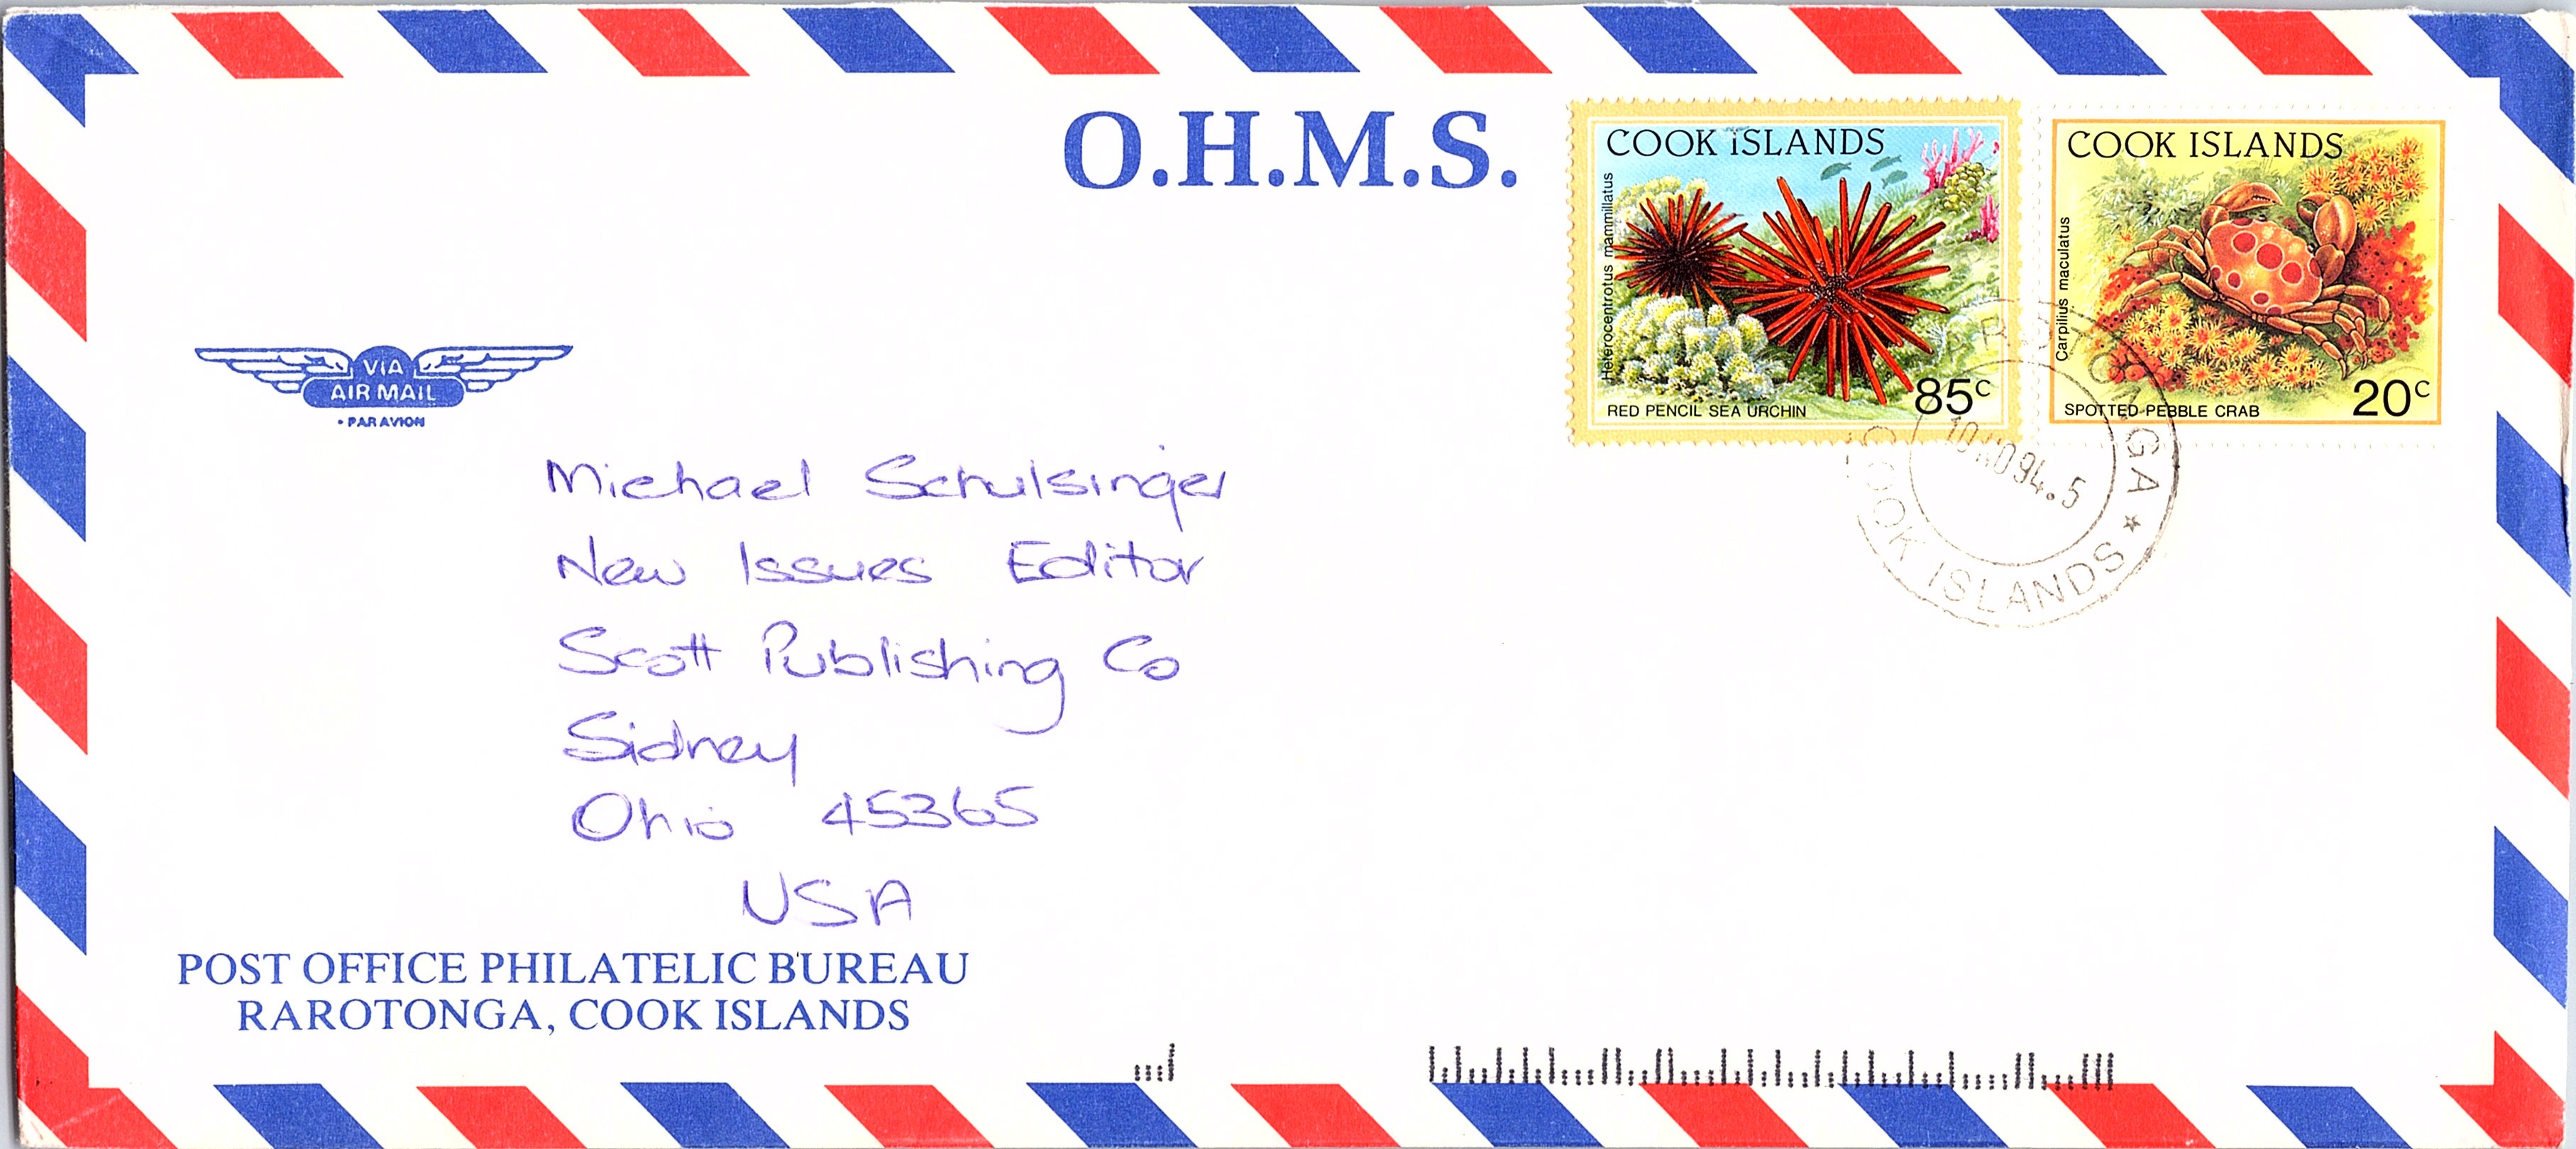 O.H.M.S.
COOK ISLANDS
Heterocentrotus mammillatus
RED PENCIL SEA URCHIN
85c
COOK ISLANDS
Carpilius maculatus
SPOTTED PEBBLE CRAB
20c
RAROTONGA ★
94.5
COOK ISLANDS
VIA
AIR MAIL
• PAR AVION
Michael Schulsinger
New Issues Editor
Scott Publishing Co
Sidney
Ohio 45365
USA
POST OFFICE PHILATELIC BUREAU
RAROTONGA, COOK ISLANDS